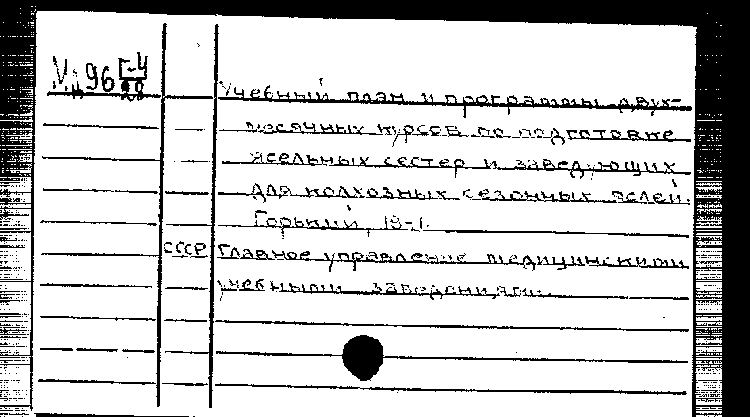 96 Г-4
28
Учебный план и программы двух-
месячных курсов по подготовке
ясельных сестер и заведующих
для колхозных сезонных яслей.
Горький,
СССР Главное управление медицинскими
учебными заведениями.